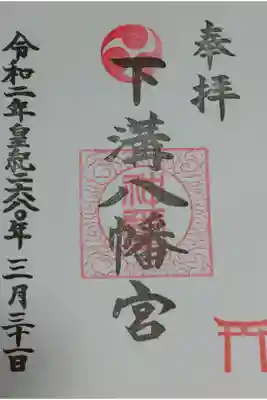 奉拝
下溝八幡宮
令和二年皇紀二六八〇年 三月三十一日